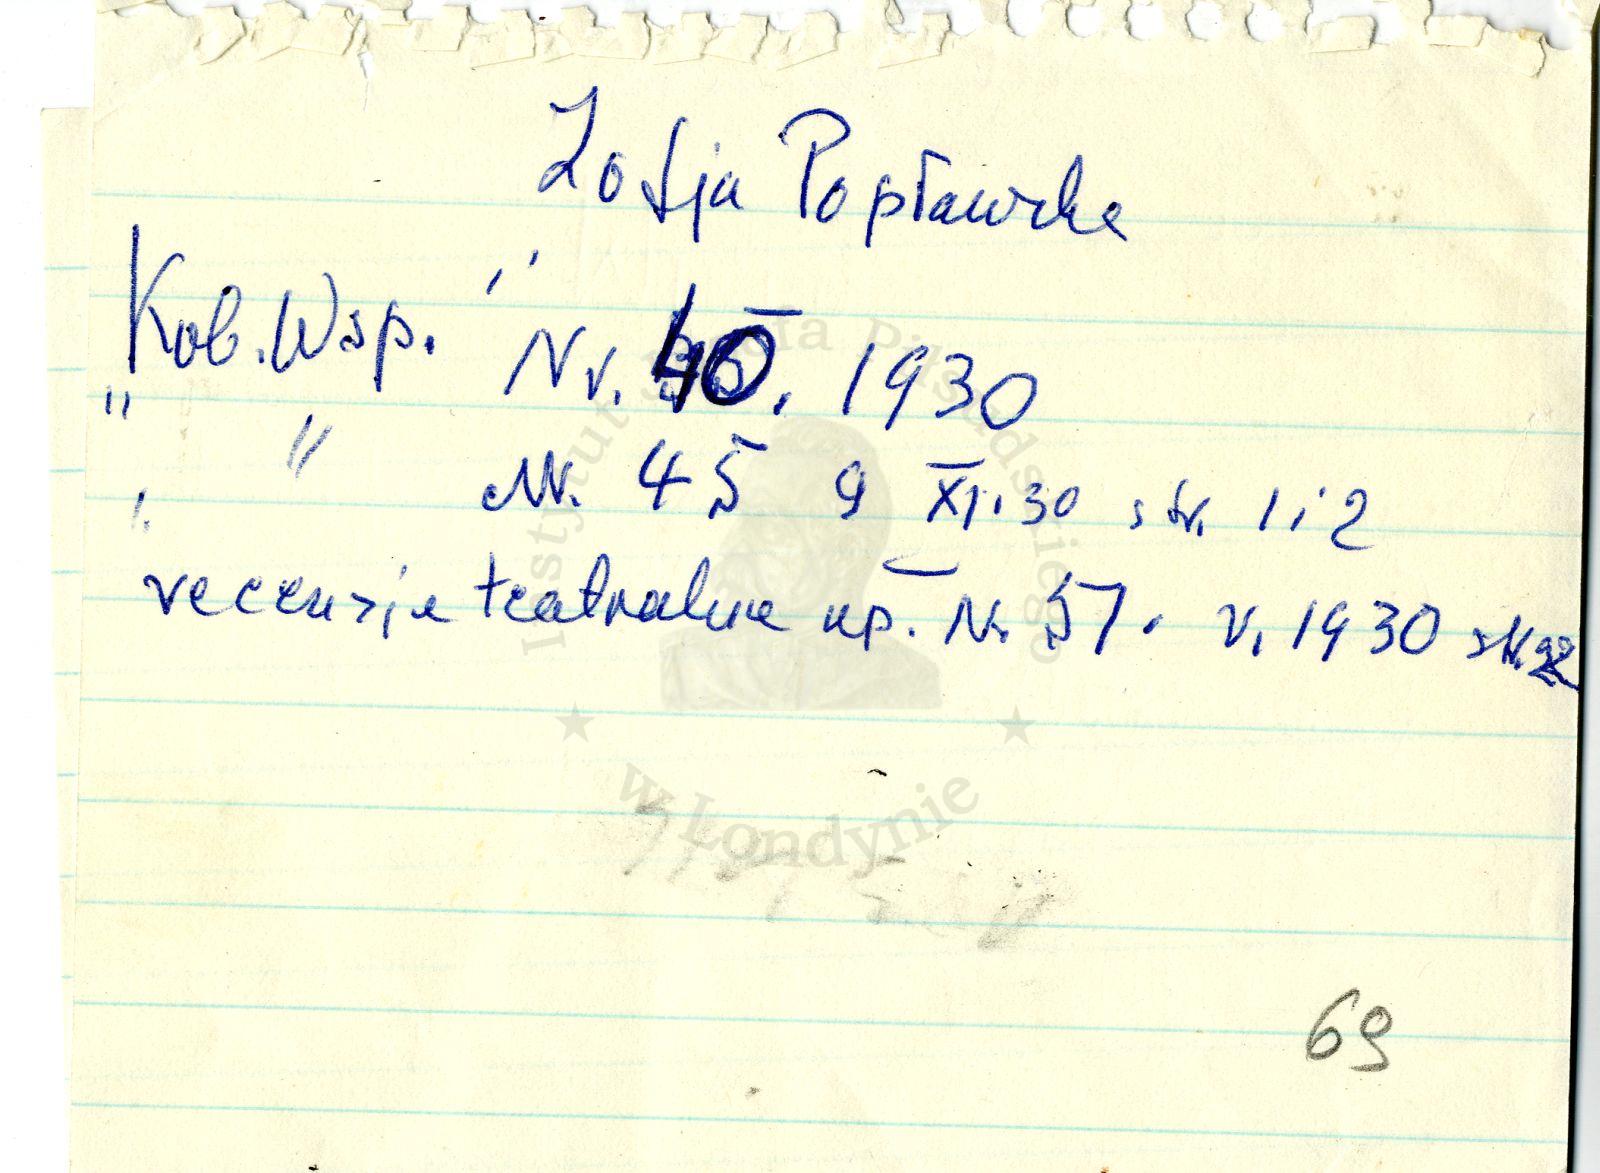 Zofja Popławska
Kob. Wsp. Nr. 40. 1930
" " Nr. 45 9 XI. 30 str. 1 i 2
recenzje teatralne np. Nr. 51. r. 1930 str.
69
Instytut Józefa Piłsudskiego
w Londynie